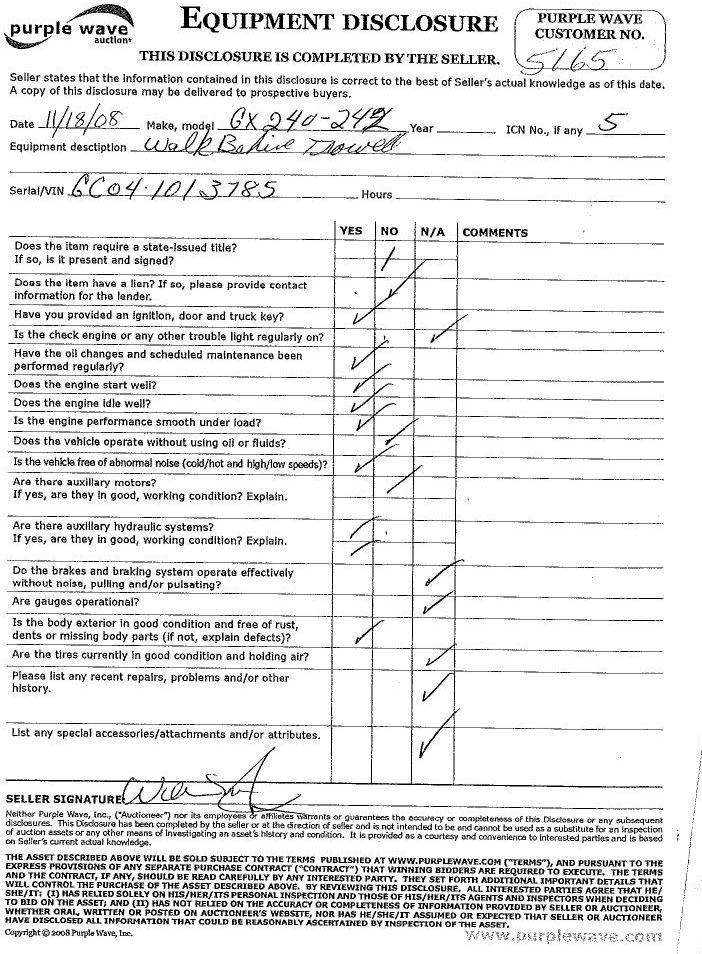 purple wave
auction
EQUIPMENT DISCLOSURE
PURPLE WAVE
CUSTOMER NO.
5165
THIS DISCLOSURE IS COMPLETED BY THE SELLER.
Seller states that the information contained in this disclosure is correct to the best of Seller's actual knowledge as of this date.
A copy of this disclosure may be delivered to prospective buyers.
Date 11/18/08 Make, model GX 240-242 Year ICN No., if any 5
Equipment desctiption Walk Behine Trowell
Serial/VIN GC04-1013785 Hours
YES NO N/A COMMENTS
Does the item require a state-issued title?
If so, is it present and signed?
Does the item have a lien? If so, please provide contact
information for the lender.
Have you provided an ignition, door and truck key?
Is the check engine or any other trouble light regularly on?
Have the oil changes and scheduled maintenance been
performed regularly?
Does the engine start well?
Does the engine idle well?
Is the engine performance smooth under load?
Does the vehicle operate without using oil or fluids?
Is the vehicle free of abnormal noise (cold/hot and high/low speeds)?
Are there auxiliary motors?
If yes, are they in good, working condition? Explain.
Are there auxillary hydraulic systems?
If yes, are they in good, working condition? Explain.
Do the brakes and braking system operate effectively
without noise, pulling and/or pulsating?
Are gauges operational?
Is the body exterior in good condition and free of rust,
dents or missing body parts (if not, explain defects)?
Are the tires currently in good condition and holding air?
Please list any recent repairs, problems and/or other
history.
List any special accessories/attachments and/or attributes.
SELLER SIGNATURE
Neither Purple Wave, Inc., ("Auctioneer") nor its employees or affiliates warrants or guarantees the accuracy or completeness of this Disclosure or any subsequent
disclosures. This Disclosure has been completed by the seller or at the direction of seller and is not intended to be and cannot be used as a substitute for an inspection
of auction assets or any other means of investigating an asset's history and condition. It is provided as a courtesy and convenience to interested parties and is based
on Seller's current actual knowledge.
THE ASSET DESCRIBED ABOVE WILL BE SOLD SUBJECT TO THE TERMS PUBLISHED AT WWW.PURPLEWAVE.COM ("TERMS"), AND PURSUANT TO THE
EXPRESS PROVISIONS OF ANY SEPARATE PURCHASE CONTRACT ("CONTRACT") THAT WINNING BIDDERS ARE REQUIRED TO EXECUTE. THE TERMS
AND THE CONTRACT, IF ANY, SHOULD BE READ CAREFULLY BY ANY INTERESTED PARTY. THEY SET FORTH ADDITIONAL IMPORTANT DETAILS THAT
WILL CONTROL THE PURCHASE OF THE ASSET DESCRIBED ABOVE. BY REVIEWING THIS DISCLOSURE, ALL INTERESTED PARTIES AGREE THAT HE/
SHE/IT: (I) HAS RELIED SOLELY ON HIS/HER/ITS PERSONAL INSPECTION AND THOSE OF HIS/HER/ITS AGENTS AND INSPECTORS WHEN DECIDING
TO BID ON THE ASSET; AND (II) HAS NOT RELIED ON THE ACCURACY OR COMPLETENESS OF INFORMATION PROVIDED BY SELLER OR AUCTIONEER,
WHETHER ORAL, WRITTEN OR POSTED ON AUCTIONEER'S WEBSITE, NOR HAS HE/SHE/IT ASSUMED OR EXPECTED THAT SELLER OR AUCTIONEER
HAVE DISCLOSED ALL INFORMATION THAT COULD BE REASONABLY ASCERTAINED BY INSPECTION OF THE ASSET.
Copyright © 2008 Purple Wave, Inc.
www.purplewave.com